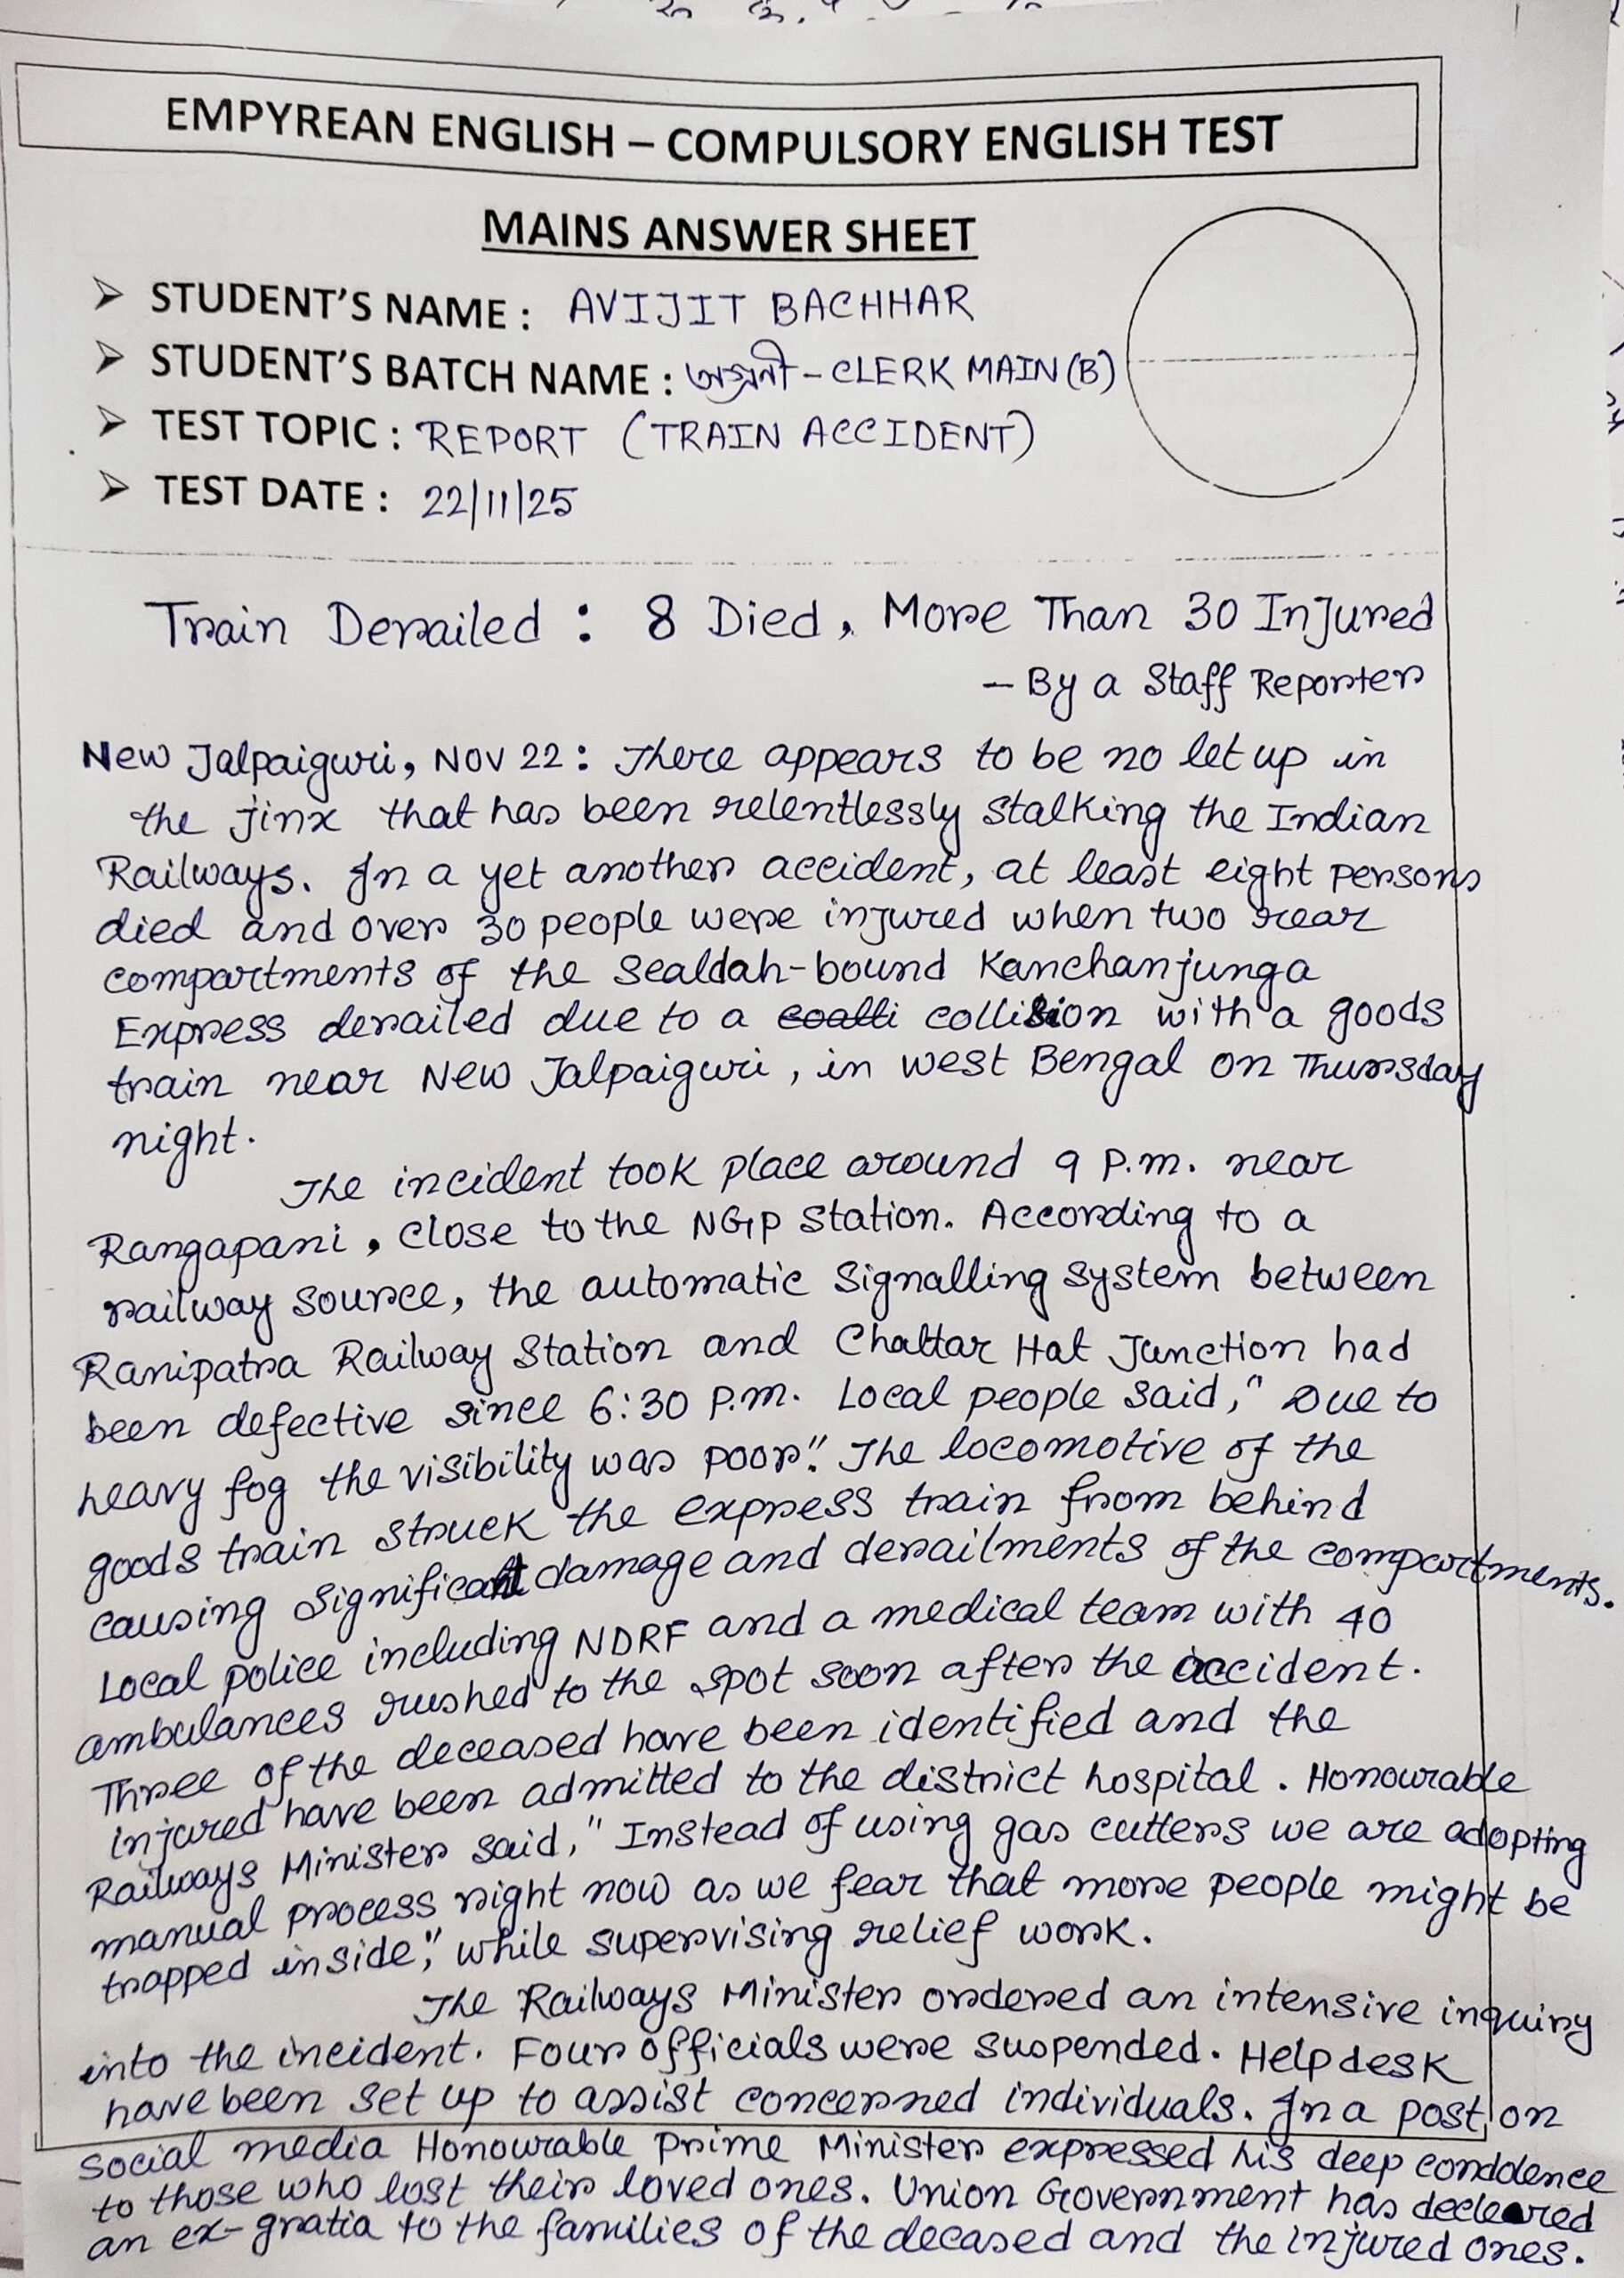 EMPYREAN ENGLISH – COMPULSORY ENGLISH TEST
MAINS ANSWER SHEET
➢ STUDENT'S NAME : AVIJIT BACHHAR
➢ STUDENT'S BATCH NAME : অগ্রণী – CLERK MAIN (B)
➢ TEST TOPIC : REPORT (TRAIN ACCIDENT)
➢ TEST DATE : 22/11/25
Train Derailed : 8 Died, More Than 30 Injured
– By a Staff Reporter
New Jalpaiguri, Nov 22 : There appears to be no let up in
the jinx that has been relentlessly stalking the Indian
Railways. In a yet another accident, at least eight persons
died and over 30 people were injured when two rear
compartments of the Sealdah-bound Kanchanjunga
Express derailed due to a coalli collision with a goods
train near New Jalpaiguri, in west Bengal on Thursday
night.
The incident took place around 9 p.m. near
Rangapani, close to the NGP station. According to a
railway source, the automatic signalling system between
Ranipatra Railway Station and Chattar Hat Junction had
been defective since 6:30 p.m. Local people said, " Due to
heavy fog the visibility was poor". The locomotive of the
goods train struck the express train from behind
causing significant damage and derailments of the compartments.
Local police including NDRF and a medical team with 40
ambulances rushed to the spot soon after the accident.
Three of the deceased have been identified and the
injured have been admitted to the district hospital. Honourable
Railways Minister said, " Instead of using gas cutters we are adopting
manual process right now as we fear that more people might be
trapped inside", while supervising relief work.
The Railways Minister ordered an intensive inquiry
into the incident. Four officials were suspended. Help desk
have been set up to assist concerned individuals. In a post on
social media Honourable Prime Minister expressed his deep conddence
to those who lost their loved ones. Union Government has decleared
an ex-gratia to the families of the decased and the injured ones.